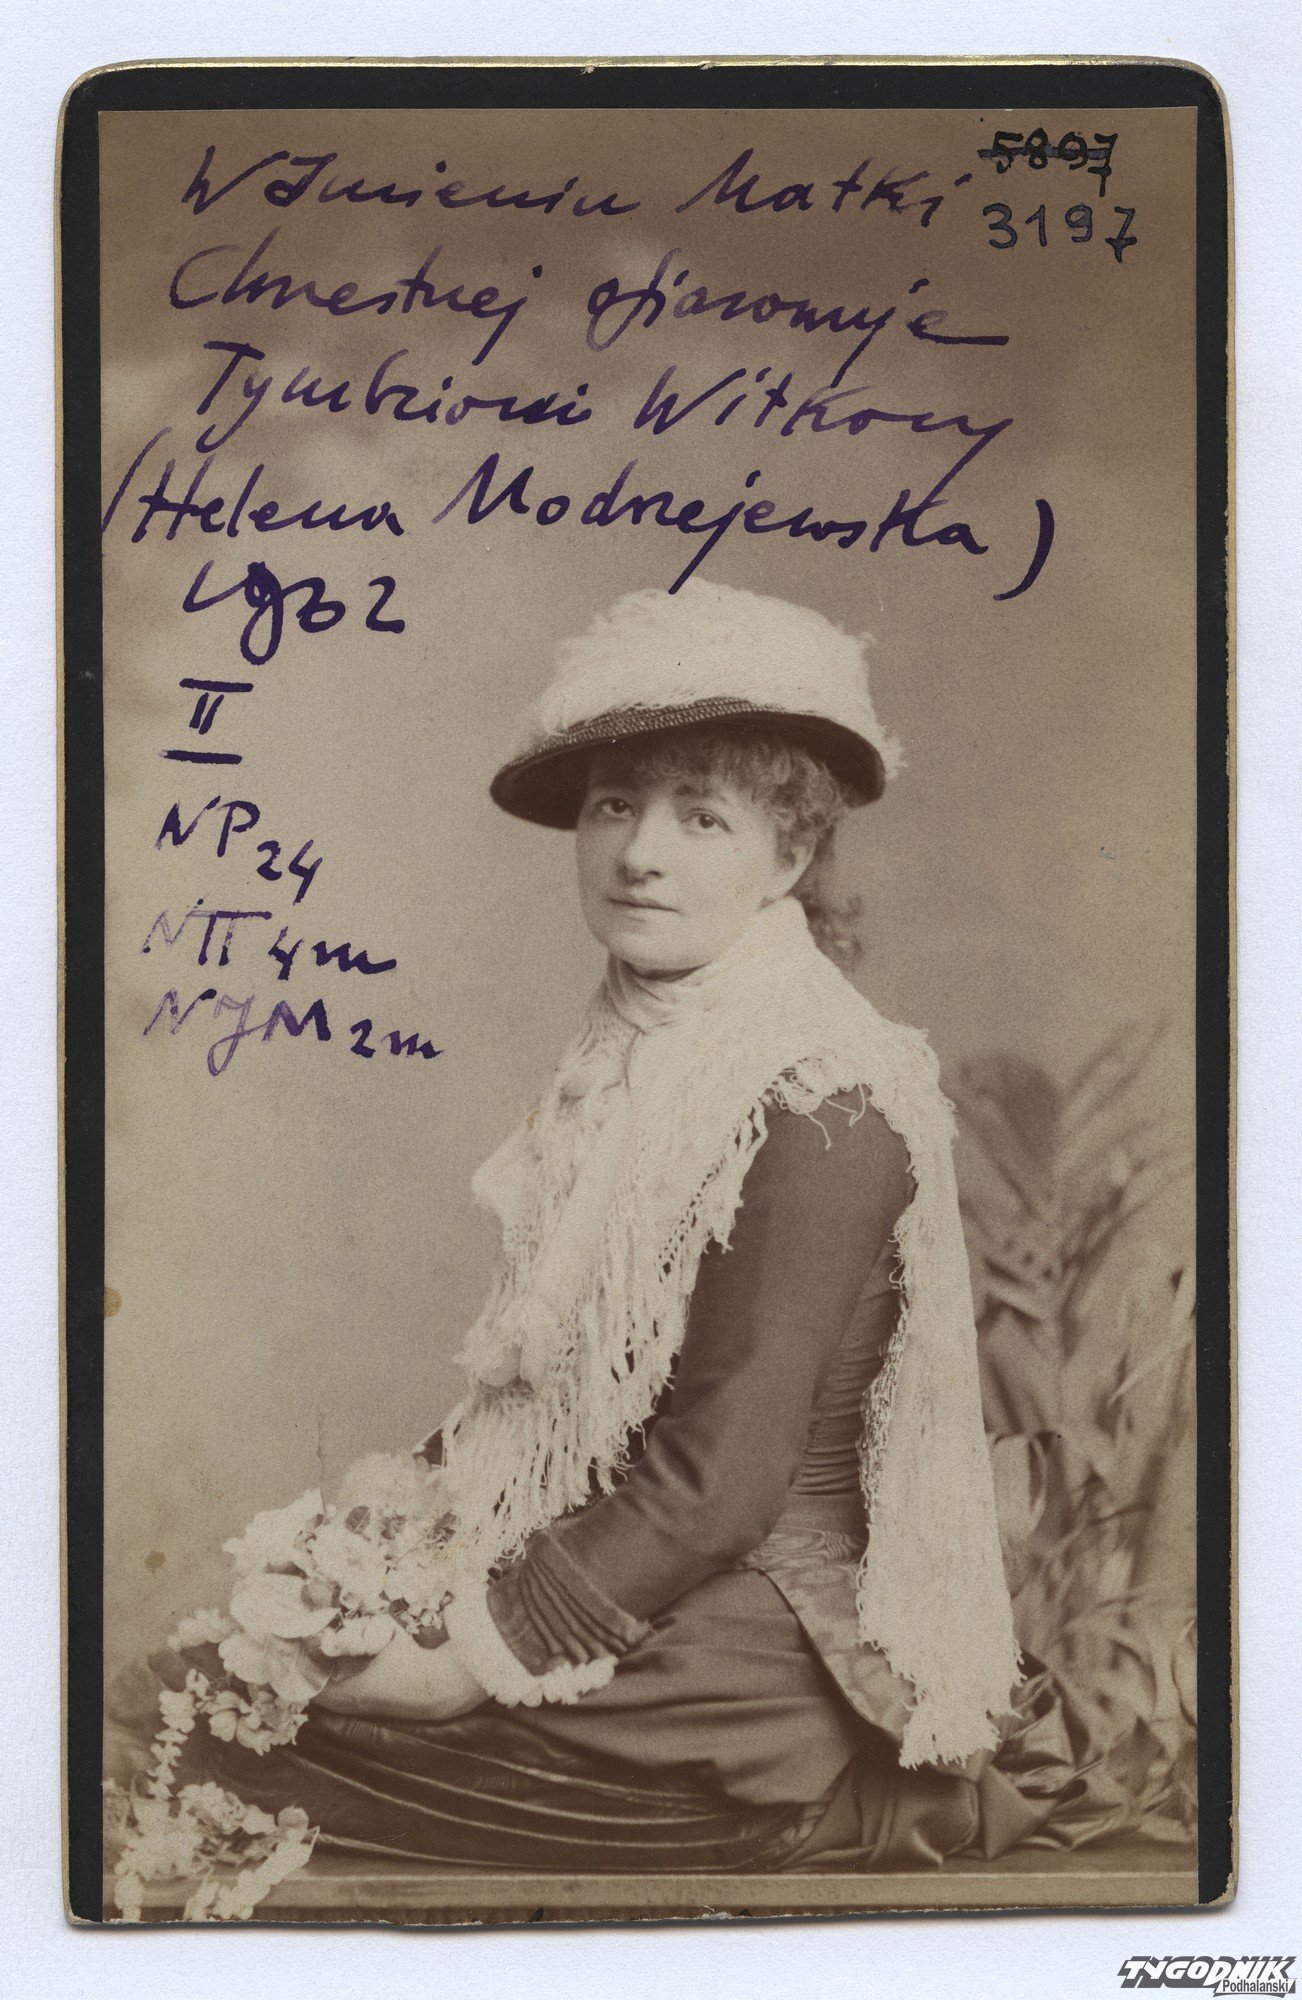 W Imieniu Matki
5897
3197
Chrzestnej ofiarowuje
Tymbciowi Witkacy
(Helena Modrzejewska)
1932
II
NP 24
Nπ 4m
NJM 2m
TYGODNIK
Podhalański